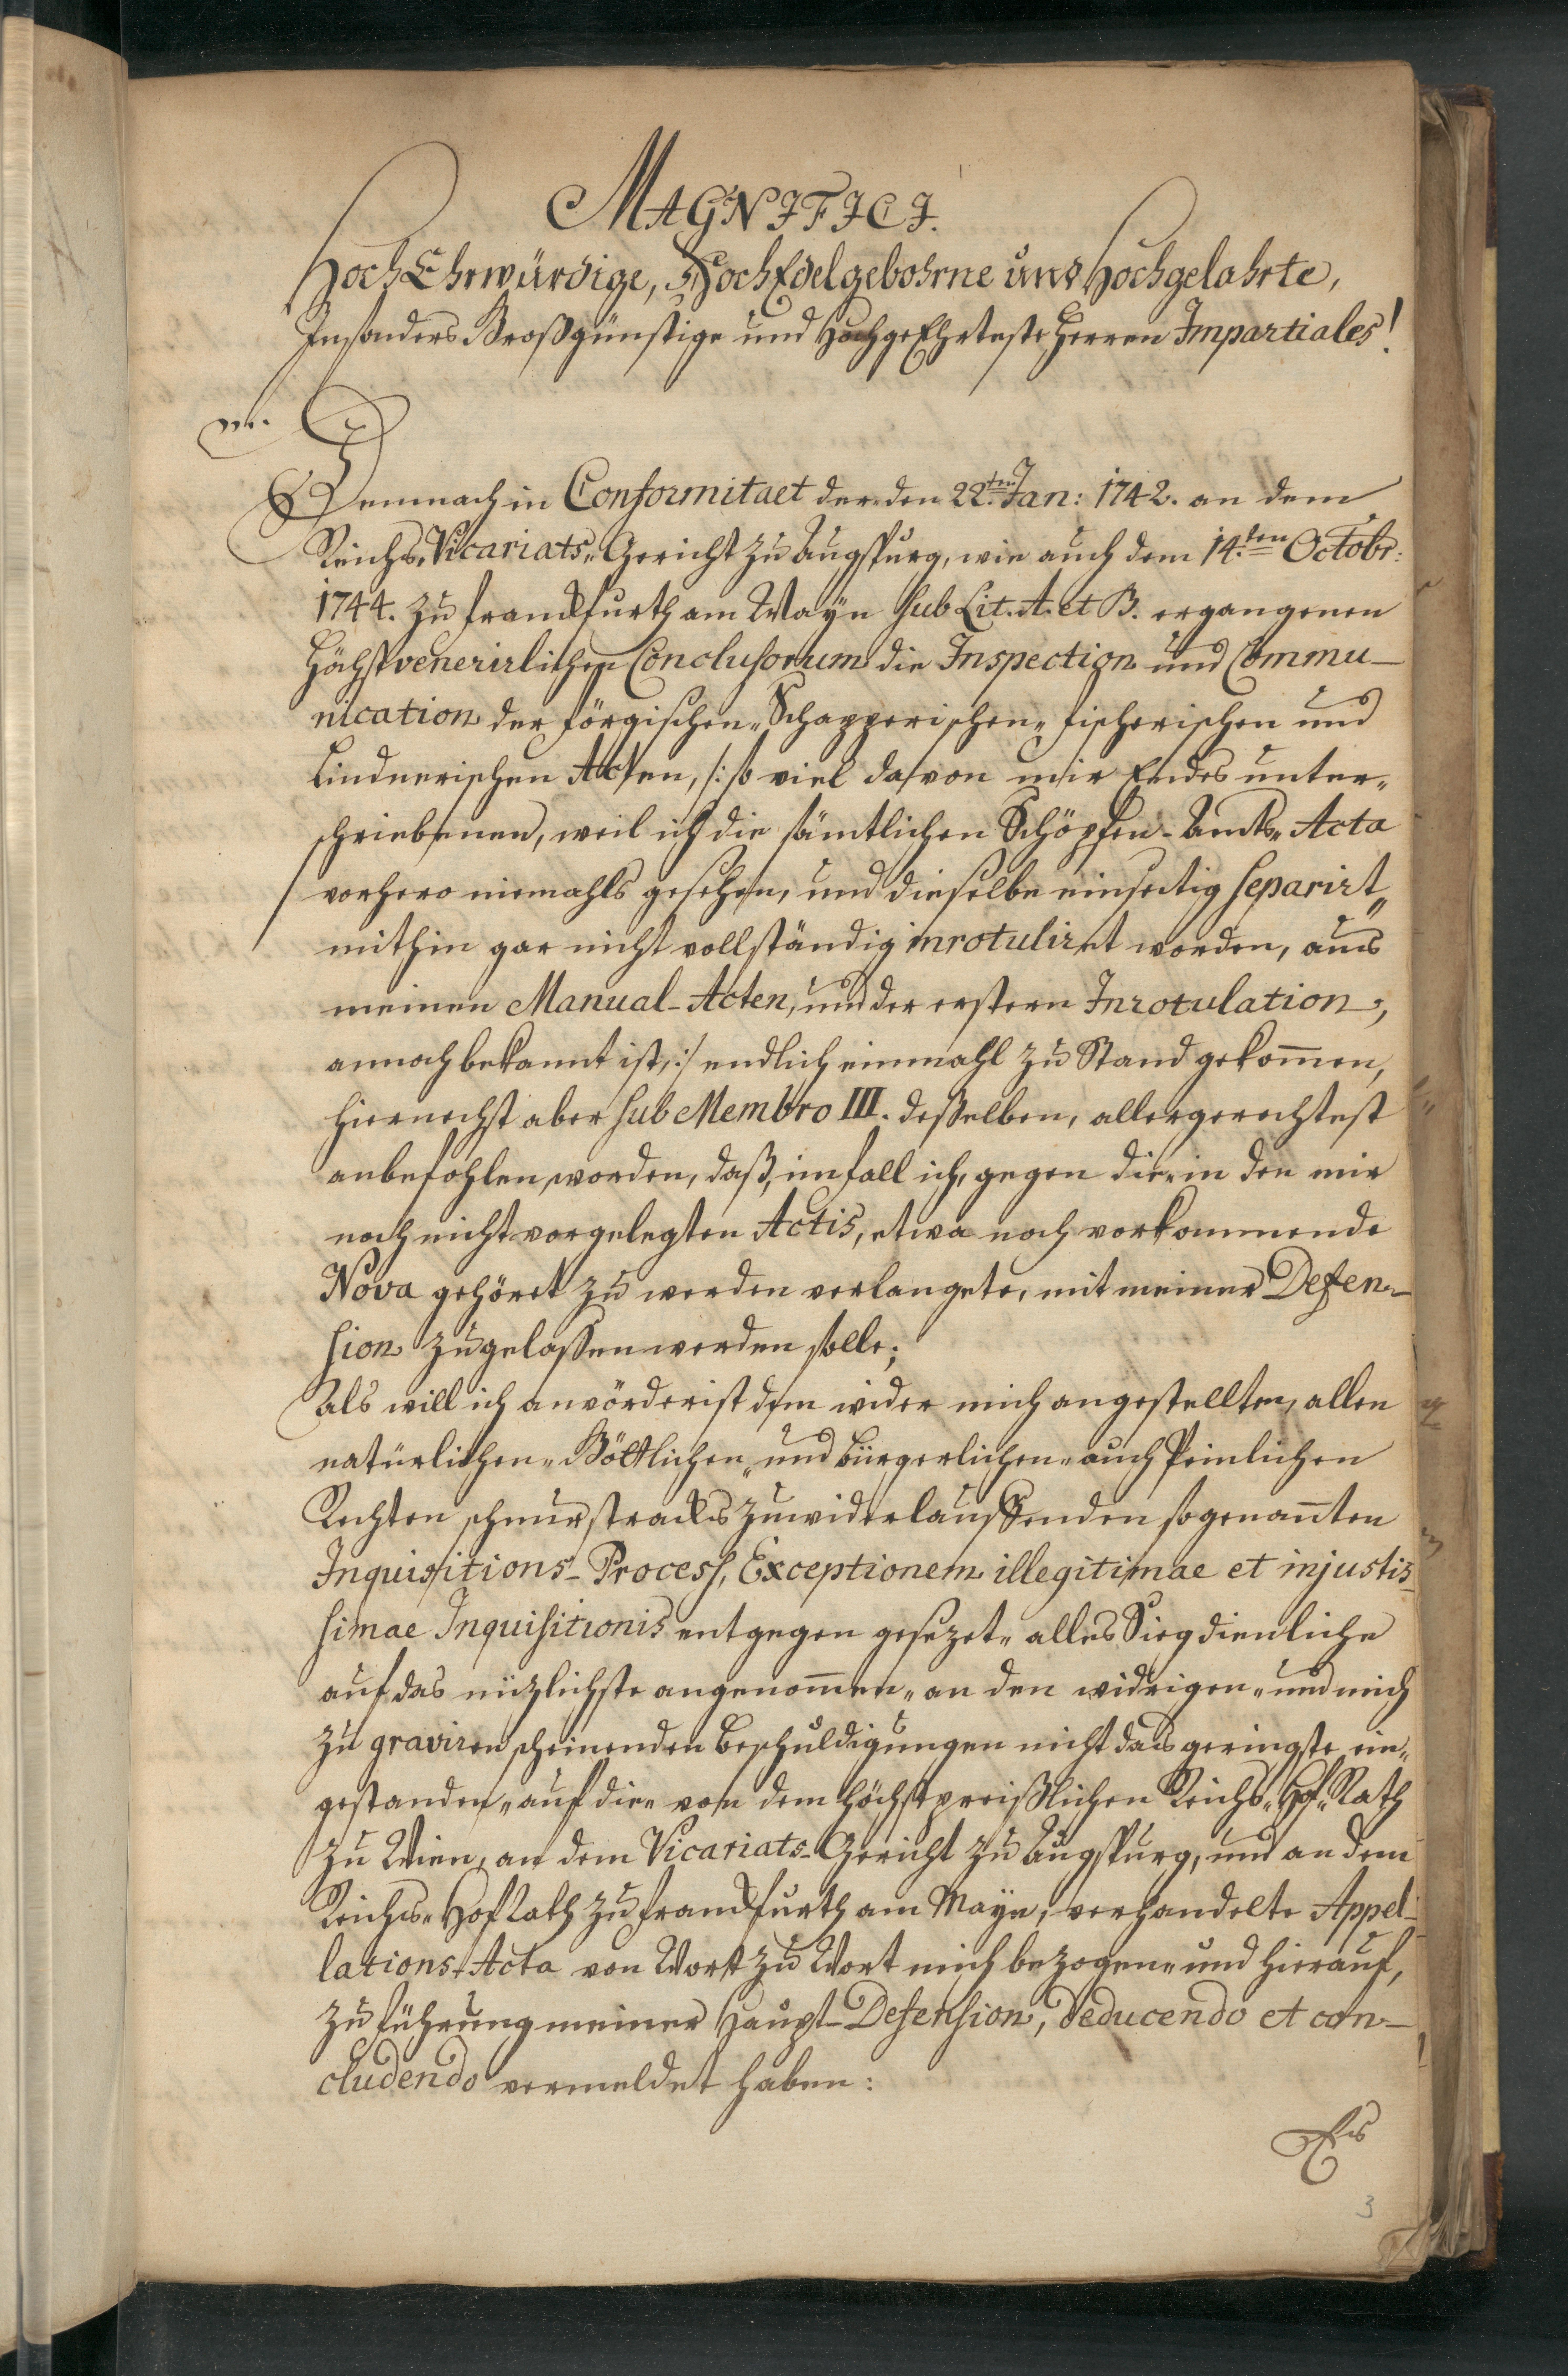 MAGNIFICI.
HochEhrwürdige, HochEdelgebohrne und Hochgelahrte,
Insonders Großgünstige und HochgeEhrteste Herren Impartiales!
Demnach in Conformitaet der den 22.ten Jan: 1742. an dem
Reichs„Vicariats„Gericht zu Augspurg, wie auch dem 14.ten Octobr:
1744. zu Franckfurth am Mayn sub Lit. A. et B. ergangenen
Höchstvenerirlichen Conclusorum die Inspection und Commu-
nication der Förgischen„ Schapperischen„ Fischerischen und
Lindnerischen Acten, /: so viel davon mir Endes unter„
schriebenen, weil ich die sämtlichen Schöpfen-Amts„Acta
vorhero niemahls gesehen, und dieselbe einseitig separirt„
mithin gar nicht vollständig inrotuliret worden, aus
meinen Manual-Acten, und der erstern Inrotulation,
annoch bekannt ist, :/ endlich einmahl zu Stand gekommen,
hiernechst aber sub Membro III. deßelben, allergerechtest
anbefohlen worden, daß, im fall ich, gegen die„ in den mir
noch nicht vorgelegten Actis, etwa noch vorkommende
Nova gehöret zu werden verlangete, mit meiner Defen-
sion zugelassen werden solle;
Als will ich anvörderist dem wider mich angestellten, allen
natürlichen„ Göttlichen„ und bürgerlichen„ auch Peinlichen
Rechten schnurstracks zuwiderlauffenden sogenannten
Inquisitions-Process, Exceptionem illegitimae et injustis-
simae Inquisitionis entgegen gesezet„ alles Siegdienliche
auf das nüzlichste angenommen„ an den widrigen„ und mich
zu graviren scheinenden Beschuldigungen nicht das geringste ein„
gestanden„ auf die„ von dem Höchstpreißlichen Reichs„Hof„Rath
zu Wien, an dem Vicariats-Gericht zu Augspurg, und an dem
Reichs„HofRath zu Franckfurth am Mayn, verhandelte Appel-
lations-Acta von Wort zu Wort mich bezogen„ und hierauf,
zu führung meiner Haupt-Defension, deducendo et con-
cludendo vermeldet haben:
Es
3